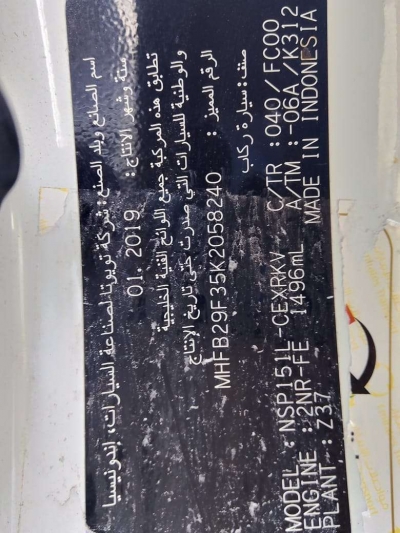 اسم الصانع وبلد الصنع: شركة تويوتا لصناعة السيارات، إندونيسيا
سنة وشهر الإنتاج: 01. 2019
تطابق هذه المركبة جميع اللوائح الفنية الخليجية
والوطنية للسيارات التي صدرت حتى تاريخ الإنتاج
الرقم المميز : MHFB29F35K2058240
صنف: سيارة ركاب
MODEL : NSP151L-CEXRKV C/TR : 040 / FC00
ENGINE : 2NR-FE 1496mL A/TM : -06A / K312
PLANT : Z37 MADE IN INDONESIA